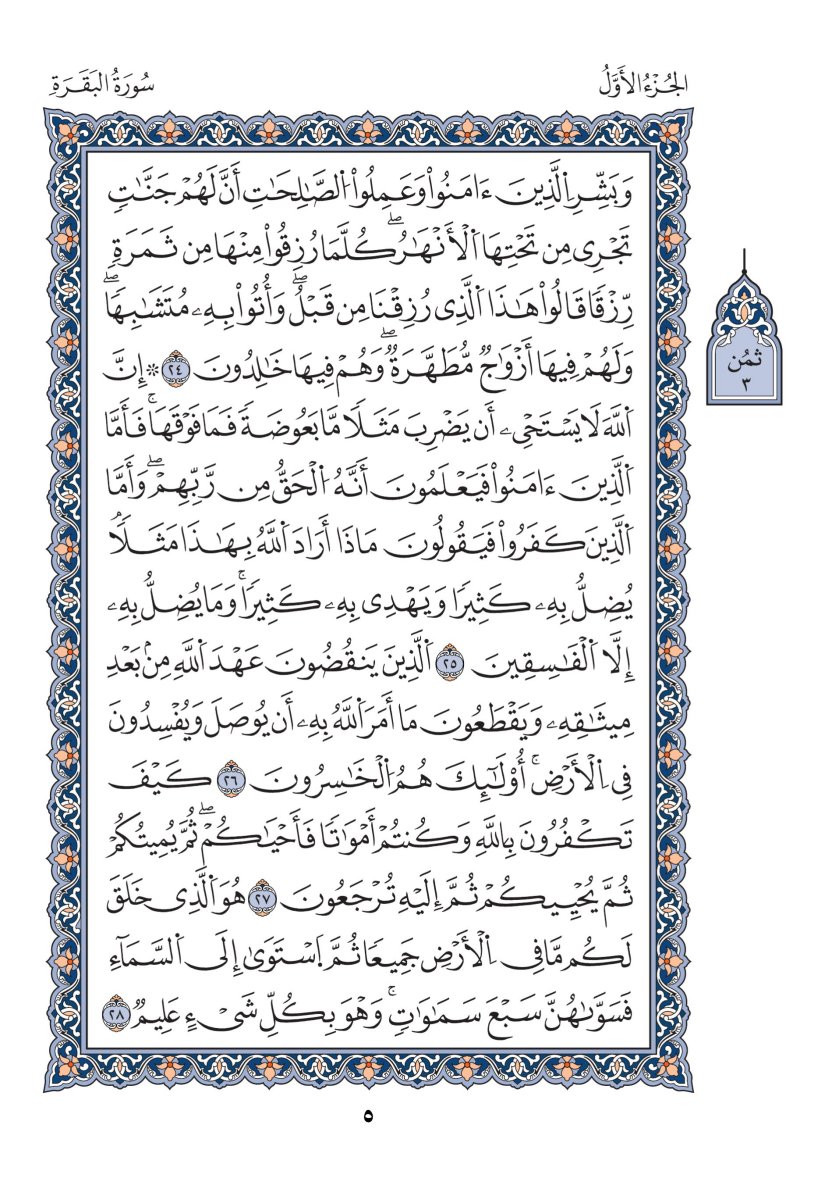 الجُزْءُ الأَوَّلُ
سُورَةُ البَقَرَةِ
وَبَشِّرِ اِ۬لَّذِينَ ءَامَنُواْ وَعَمِلُواْ اُ۬لصَّٰلِحَٰتِ أَنَّ لَهُمْ جَنَّٰتٖ
تَجْرِے مِن تَحْتِهَا اَ۬لْأَنْهَٰرُۖ كُلَّمَا رُزِقُواْ مِنْهَا مِن ثَمَرَةٖ
رِّزْقٗا قَالُواْ هَٰذَا اَ۬لَّذِے رُزِقْنَا مِن قَبْلُۖ وَأُتُواْ بِهِۦ مُتَشَٰبِهٗاۖ
وَلَهُمْ فِيهَا أَزْوَٰجٞ مُّطَهَّرَةٞۖ وَهُمْ فِيهَا خَٰلِدُونَ ٢٤ ۞ إِنَّ
اَ۬للَّهَ لَا يَسْتَحْيِۦ أَن يَضْرِبَ مَثَلٗا مَّا بَعُوضَةٗ فَمَا فَوْقَهَاۚ فَأَمَّا
اَ۬لَّذِينَ ءَامَنُواْ فَيَعْلَمُونَ أَنَّهُ اُ۬لْحَقُّ مِن رَّبِّهِمْۖ وَأَمَّا
اَ۬لَّذِينَ كَفَرُواْ فَيَقُولُونَ مَاذَا أَرَادَ اَ۬للَّهُ بِهَٰذَا مَثَلٗاۘ
يُضِلُّ بِهِۦ كَثِيرٗا وَيَهْدِے بِهِۦ كَثِيرٗاۚ وَمَا يُضِلُّ بِهِۦ
إِلَّا اَ۬لْفَٰسِقِينَ ٢٥ اَ۬لَّذِينَ يَنقُضُونَ عَهْدَ اَ۬للَّهِ مِنۢ بَعْدِ
مِيثَٰقِهِۦ وَيَقْطَعُونَ مَا أَمَرَ اَ۬للَّهُ بِهِۦ أَن يُوصَلَ وَيُفْسِدُونَ
فِے اِ۬لْأَرْضِۚ أُوْلَٰٓئِكَ هُمُ اُ۬لْخَٰسِرُونَ ٢٦ كَيْفَ
تَكْفُرُونَ بِاللَّهِ وَكُنتُمْ أَمْوَٰتٗا فَأَحْيَٰكُمْۖ ثُمَّ يُمِيتُكُمْ
ثُمَّ يُحْيِيكُمْ ثُمَّ إِلَيْهِ تُرْجَعُونَ ٢٧ هُوَ اَ۬لَّذِے خَلَقَ
لَكُم مَّا فِے اِ۬لْأَرْضِ جَمِيعٗا ثُمَّ اَ۪سْتَوَىٰ إِلَى اَ۬لسَّمَآءِ
فَسَوَّىٰهُنَّ سَبْعَ سَمَٰوَٰتٖۚ وَهْوَ بِكُلِّ شَےْءٍ عَلِيمٞ ٢٨
ثمُن
٣
٥